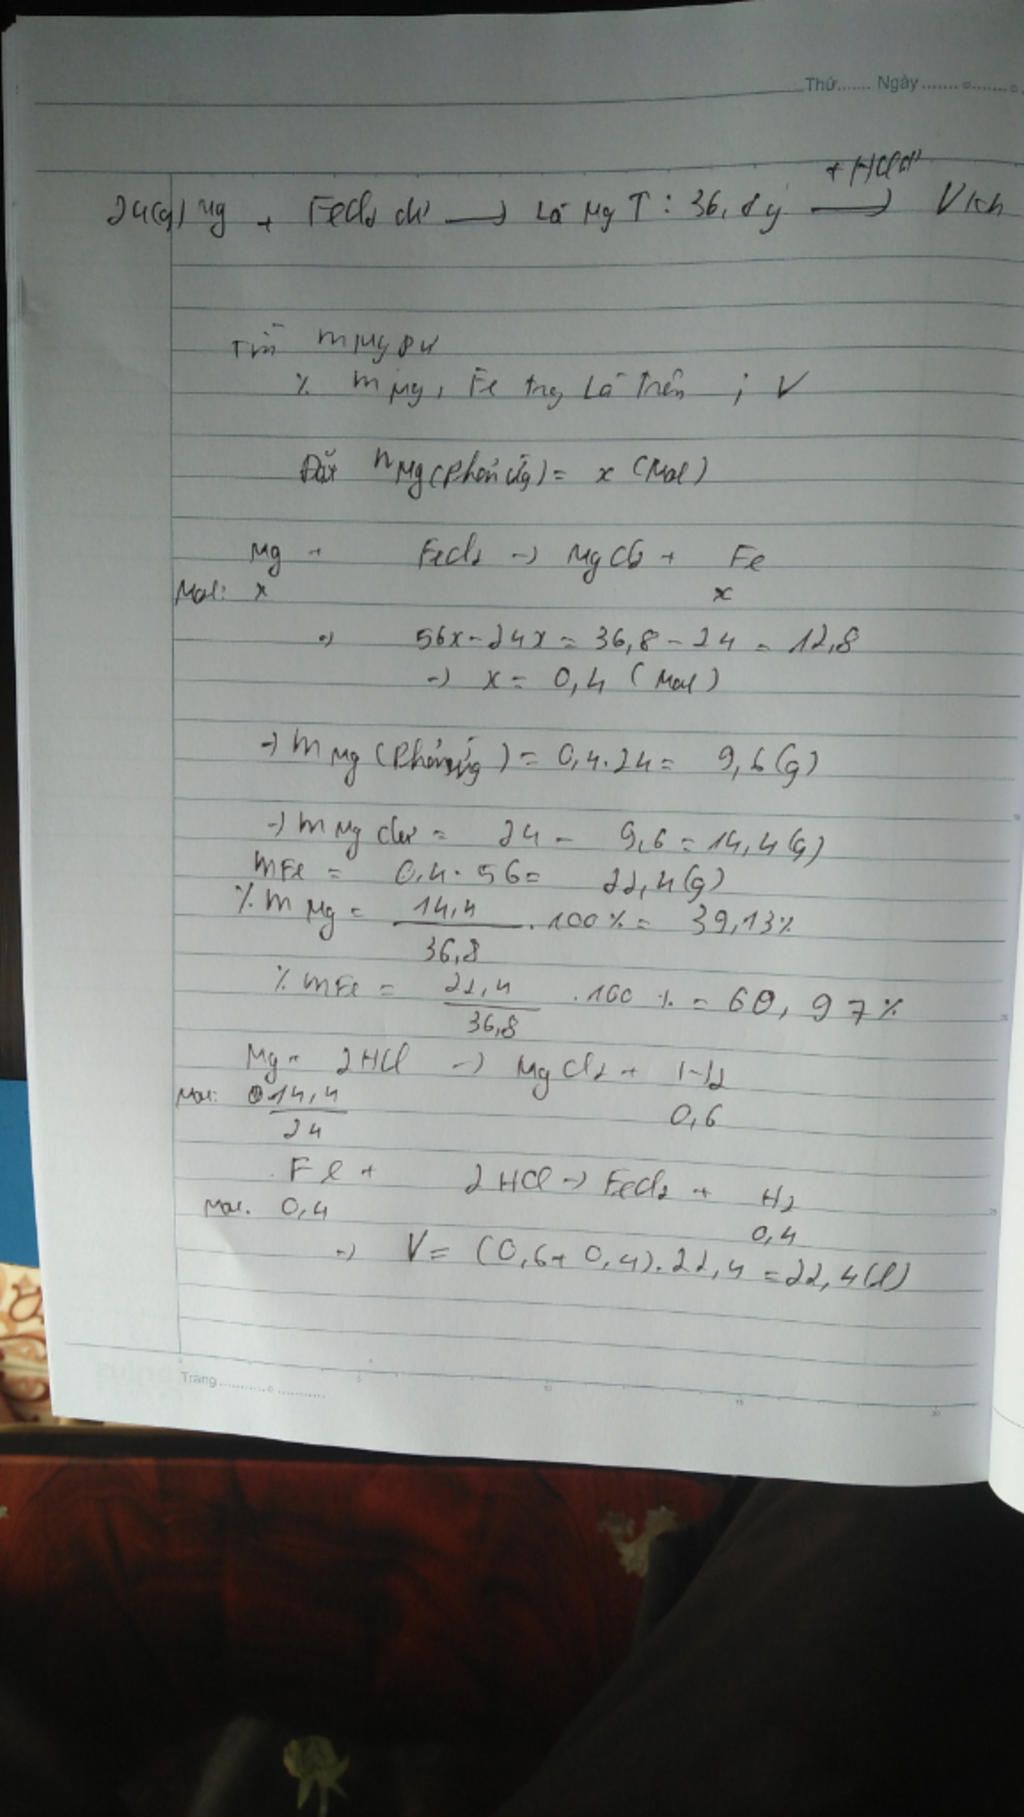 Thứ....... Ngày ....... o ....... o
+ HCl dư
24(g) Mg + FeCl2 dư → Lá Mg T : 36,8g → V kh
Tìm mMg pư
% mMg, Fe trg Lá trên ; V
Đặt nMg(phản ứng) = x (mol)
Mg + FeCl2 → MgCl2 + Fe
Mol: x x
→ 56x - 24x = 36,8 - 24 = 12,8
→ x = 0,4 (mol)
→ mMg (phản ứng) = 0,4.24 = 9,6(g)
→ mMg dư = 24 - 9,6 = 14,4(g)
mFe = 0,4.56 = 22,4(g)
% mMg = 14,4/36,8 .100% = 39,13%
% mFe = 22,4/36,8 .100 % = 60,97%
Mg + 2HCl → MgCl2 + H2
Mol: 14,4/24 0,6
Fe + 2HCl → FeCl2 + H2
Mol. 0,4 0,4
→ V = (0,6 + 0,4).22,4 = 22,4(l)
Trang ......... o .........